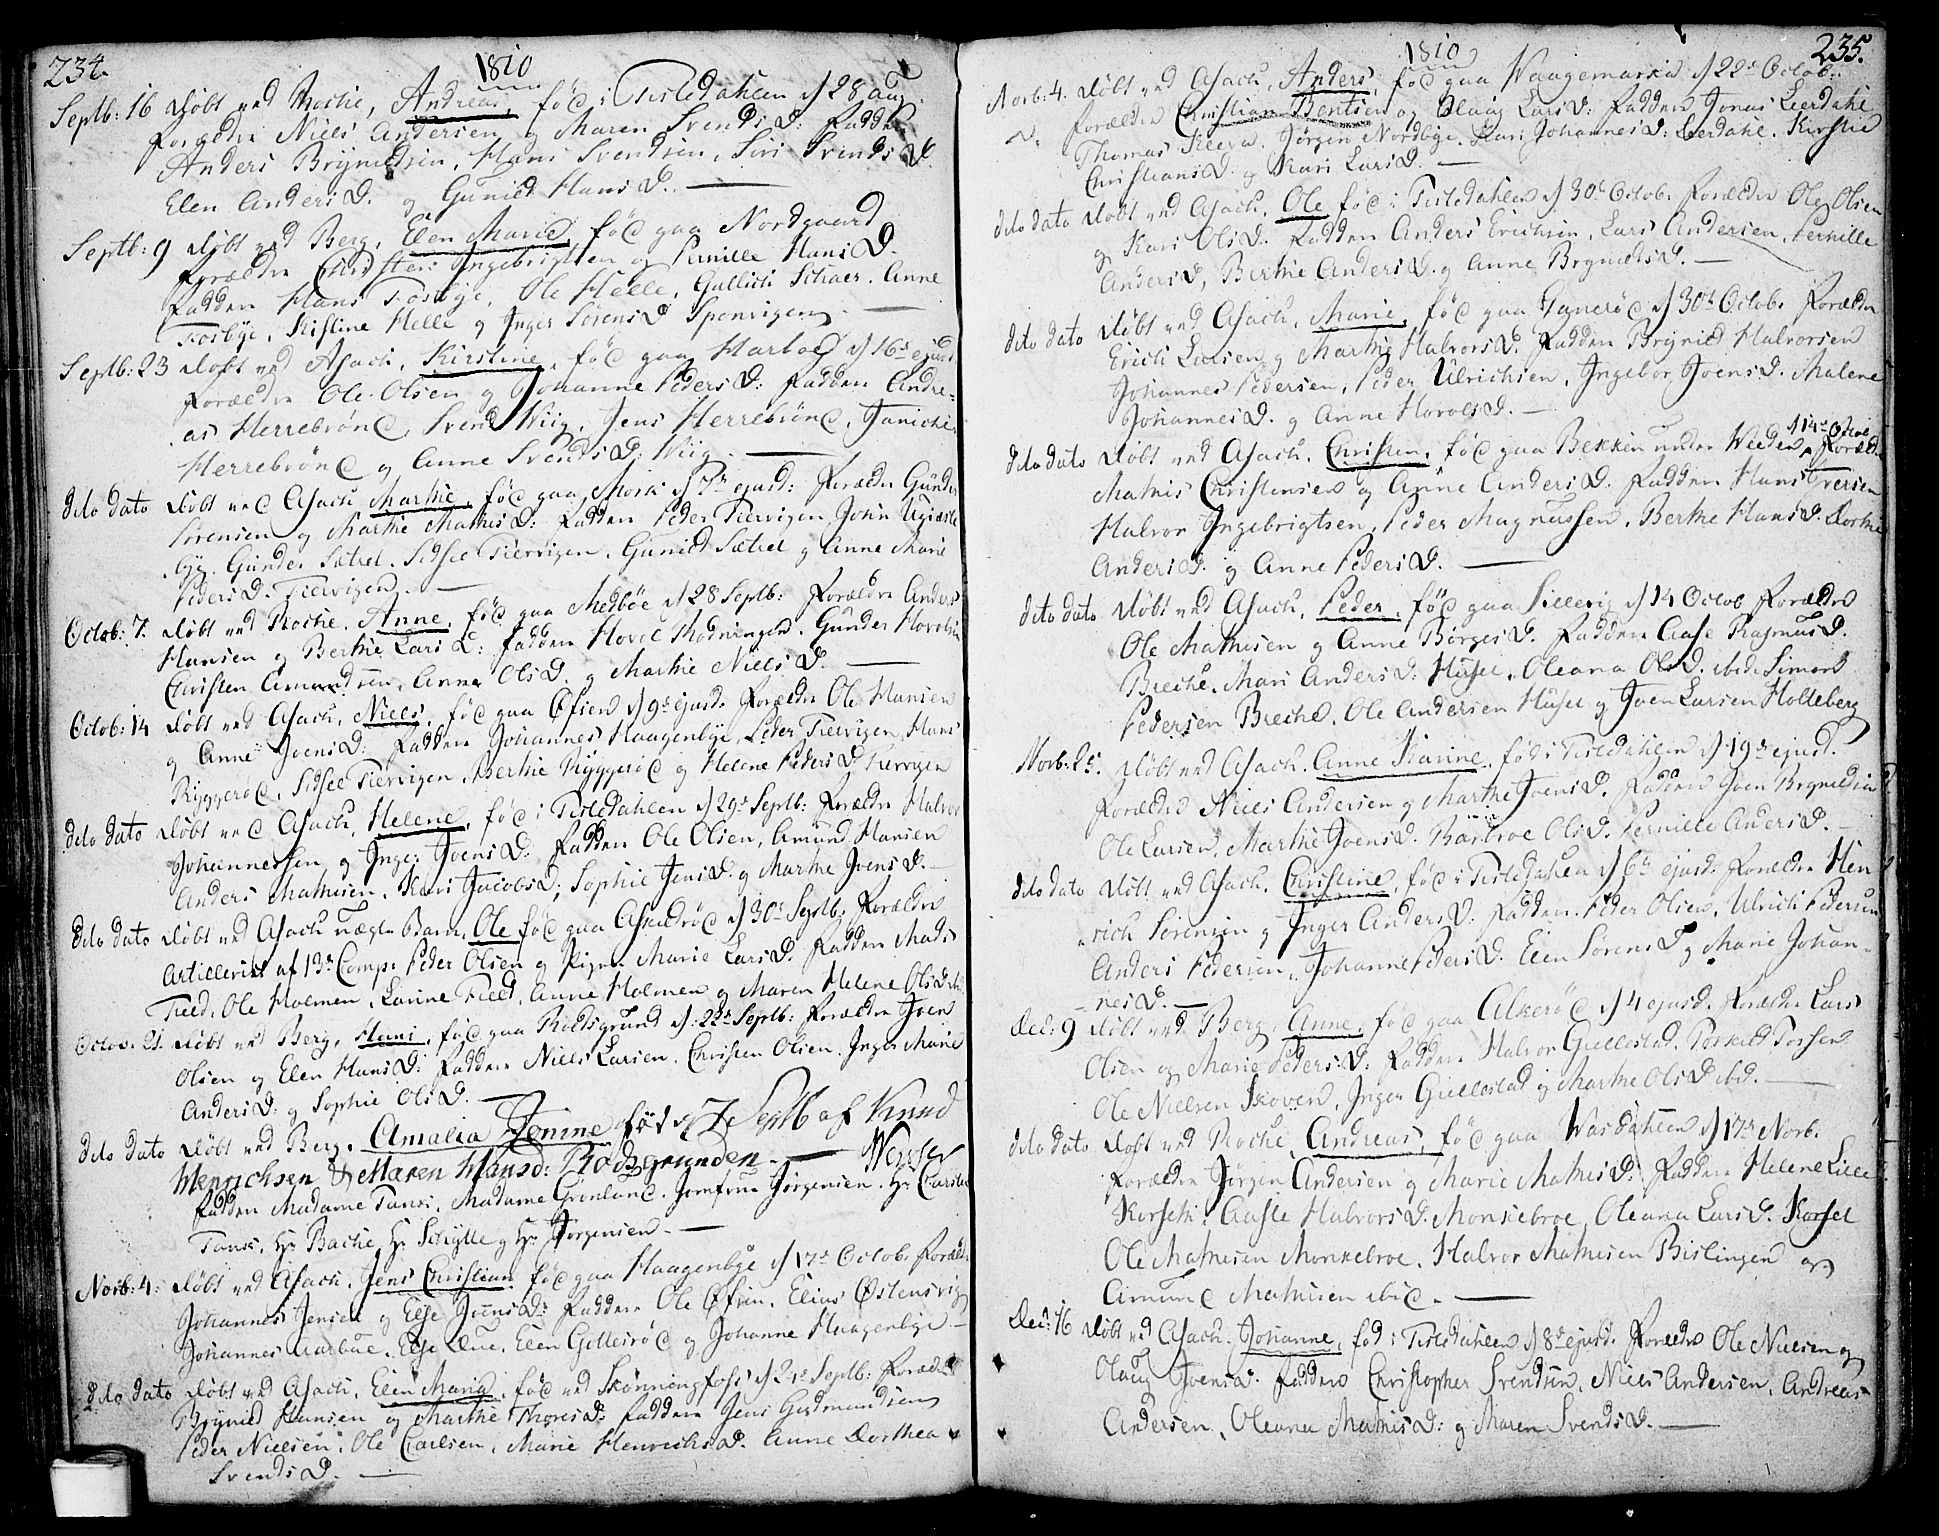 234.
1810
Septb: 16 Døbt ved Rocke, Andreas, fød i Tistedahlen d 28 Aug:
Forældre Niels Andersen og Maren Svends D: Faddere
Anders Brynildsen, Hans Svendsen, Siri Svends D.
Elen Anders D. og Gunild Hans D. —
Septb: 9 Døbt ved Berg, Elen Marie, fød paa Nordgaard
Forældre Christen Ingebrigtsen og Pernille Hans D.
Faddere Hans Fosbye, Ole Helle, Gullich Schaer, Anne
Fosbye, Kistine Helle og Inger Sørens D Sponvigen. —
Septb: 23 Døbt ved Asach, Kirstine, fød paa Harboe d 16de ejusd.
Forældre Ole Olsen og Johanne Peders D: Faddere Andre-
as Herrebrøne, Svend Wiig, Jens Herrebrøne, Janiche
Herrebrøne og Anne Svends D: Wiig. —
dito dato Døbt ved Asach Marthe, fød paa Mork d 7de ejusd: Forældre Gunder
Sørensen og Marthe Mathis D: Faddere Peder Tiervigen, John
bye, Gunder Sætrel, Sidsel Tiervigen, Gunild Sætrel og Anne Marie
Peders D. Tiervigen. —
Octob: 7. Døbt ved Rocke, Anne, fød paa Medbøe d 28 Septb: Forældre Anders
Hansen og Berthe Lars D: Faddere Hovel Rødningen, Gunder Hovelsen
Christen Amundsen, Anne Ols D. og Marthe Niels D. —
Octob: 14 Døbt ved Asach, Niels, fød paa Øfsen d 9de ejusd. Forældre Ole Hansen
og Anne Joens D: Faddere Johannes Haagenbye, Peder Tiervigen, Hans
Ryggerøe, Sidsel Tiervigen, Berthe Ryggerøe og Helene Peders D. Tiervigen
dito dato Døbt ved Asach, Helene, fød i Tistedahlen d 29de Septb: Forældre Halvor
Johannessen og Inger Joens D: Faddere Ole Olsen, Amund Hansen
Anders Mathisen, Kari Jacobs D, Sophie Jens D. og Marthe Joens D. —
dito dato Døbt ved Asach uægte Barn, Ole fød paa Askedrøe d 30te Septb: Forældre
Artillerist af 13de Comp: Peder Olsen og Pigen Marie Lars D. Faddere Mads
Field, Ole Holmen, Larine Field, Anne Holmen og Maren Helene Ols D.
Octob: 21. Døbt ved Berg, Hans, fød paa Rødsgrund d: 22de Septb: Forældre Joen
Olsen og Elen Hans D: Faddere Niels Larsen, Christen Olsen, Inger Marie
Anders D: og Sophie Ols D. —
dito dato Døbt ved Berg, Amalia Jenine født d 7 Septb af Knud
Henrichsen & Maren Hansd: Rødsgrunden. —
Faddere Madame Tank, Madame Grønlund, Jomfrue Jørgensen, Hr Carsten
Tank, Hr Bache, Hr Schytte og Hr Jørgensen. —
Novb: 4. Døbt ved Asach, Jens Christian, fød paa Haagenbye d 17de Octob. Foræld:
Johannes Jensen og Else Joens D: Faddere Ole Øfsen, Elias Østensvig
Johannes Aarbue, Else Due, Elen Gollesrøe og Johanne Haagenbye —
dito dato Døbt ved Asach, Elen Maria, fød ved Skønningfoss d 24de Septb: Forældre
Brynild Hansen og Marthe Thores D. Faddere Jens Gudmundsen
Peder Nielsen, Ole Carlsen, Marie Henrichs D. Anne Dorthea
Svends D. —
235.
1810
Novb: 4. Døbt ved Asach, Anders, fød paa Waagemarka d 22de Octob:
Forældre Christian Bentsen og Olaug Lars D: Faddere Jonas Leerdahl
Thomas Kleva, Jørgen Nordbye, Kari Johannes D: Leerdahl, Kirstie
Christians D. og Kari Lars D. —
dito dato Døbt ved Asach, Ole, fød i Tistedahlen d 30te Octob: Forældre Ole Olsen
og Kari Ols D. Faddere Anders Erichsen, Lars Andersen, Pernille
Anders D, Berthe Anders D. og Anne Brynilds D. —
dito dato Døbt ved Asach, Marie, fød paa d 30te Octob: Forældre
Erich Larsen og Marthe Halvors D. Faddere Brynild Halvorsen
Johannes Pedersen, Peder Ulrichsen, Ingebor Joens D. Malene
Johannes D. og Anne Hovels D. —
dito dato Døbt ved Asach, Christen, fød paa Bekken under Weeden d 14de Octob: Foræld:
Mathis Christensen og Anne Anders D. Faddere Hans Iversen
Halvor Ingebrigtsen, Peder Magnussen, Berthe Hans D. Dorthe
Anders D. og Anne Peders D. —
dito dato Døbt ved Asach, Peder, fød paa Sillevig d 14 Octob Forældre
Ole Mathisen og Anne Børges D. Faddere Aase Rasmus D.
Breche, Mari Anders D: Husel, Oleana Ols D. ibid. Simon
Pedersen Breche, Ole Andersen Husel og Joen Larsen Holteberg
Novb: 25. Døbt ved Asach, Anne Karine, fød i Tistedahlen d 19de ejusd.
Forældre Niels Andersen og Marthe Joens D. Faddere Joen Brynildsen
Ole Larsen, Marthe Joens D. Barbroe Ols D. Pernille Anders D. —
dito dato Døbt ved Asach, Christine, fød i Tistedahlen d 6te ejusd. Forældre Hen
rich Sørensen og Inger Anders D: Faddere Peder Olsen, Ulrich Pedersen
Anders Pedersen, Johanne Peders D. Elen Sørens D og Marie Johan-
nes D. —
Dec: 9 Døbt ved Berg, Anne, fød paa Alkerøe d 4 ejusd. Forældre Lars
Olsen og Marie Peders D: Faddere Halvor Giellestad, Torkild Torsen
Ole Nielsen Skoven, Inger Giellestad og Marthe Ols D ibid. —
dito dato Døbt ved Rocke, Andreas, fød paa Wasdahlen d 17de Novb.
Forældre Jørgen Andersen og Marie Mathis D: Faddere Helene Lille
Korseth, Aasle Halvors D. Monkebroe, Oleana Lars D. Korset
Ole Mathisen Monkebroe, Halvor Mathisen Bislingen og
Amund Mathisen ibid. —
Dec: 16 Døbt ved Asach, Johanne, fød i Tistedahlen d 8de ejusd. Forældre Ole Nielsen og
Olaug Joens D. Faddere Christopher Svendsen, Niels Andersen, Andreas
Andersen, Oleana Mathis D: og Maren Svends D. —